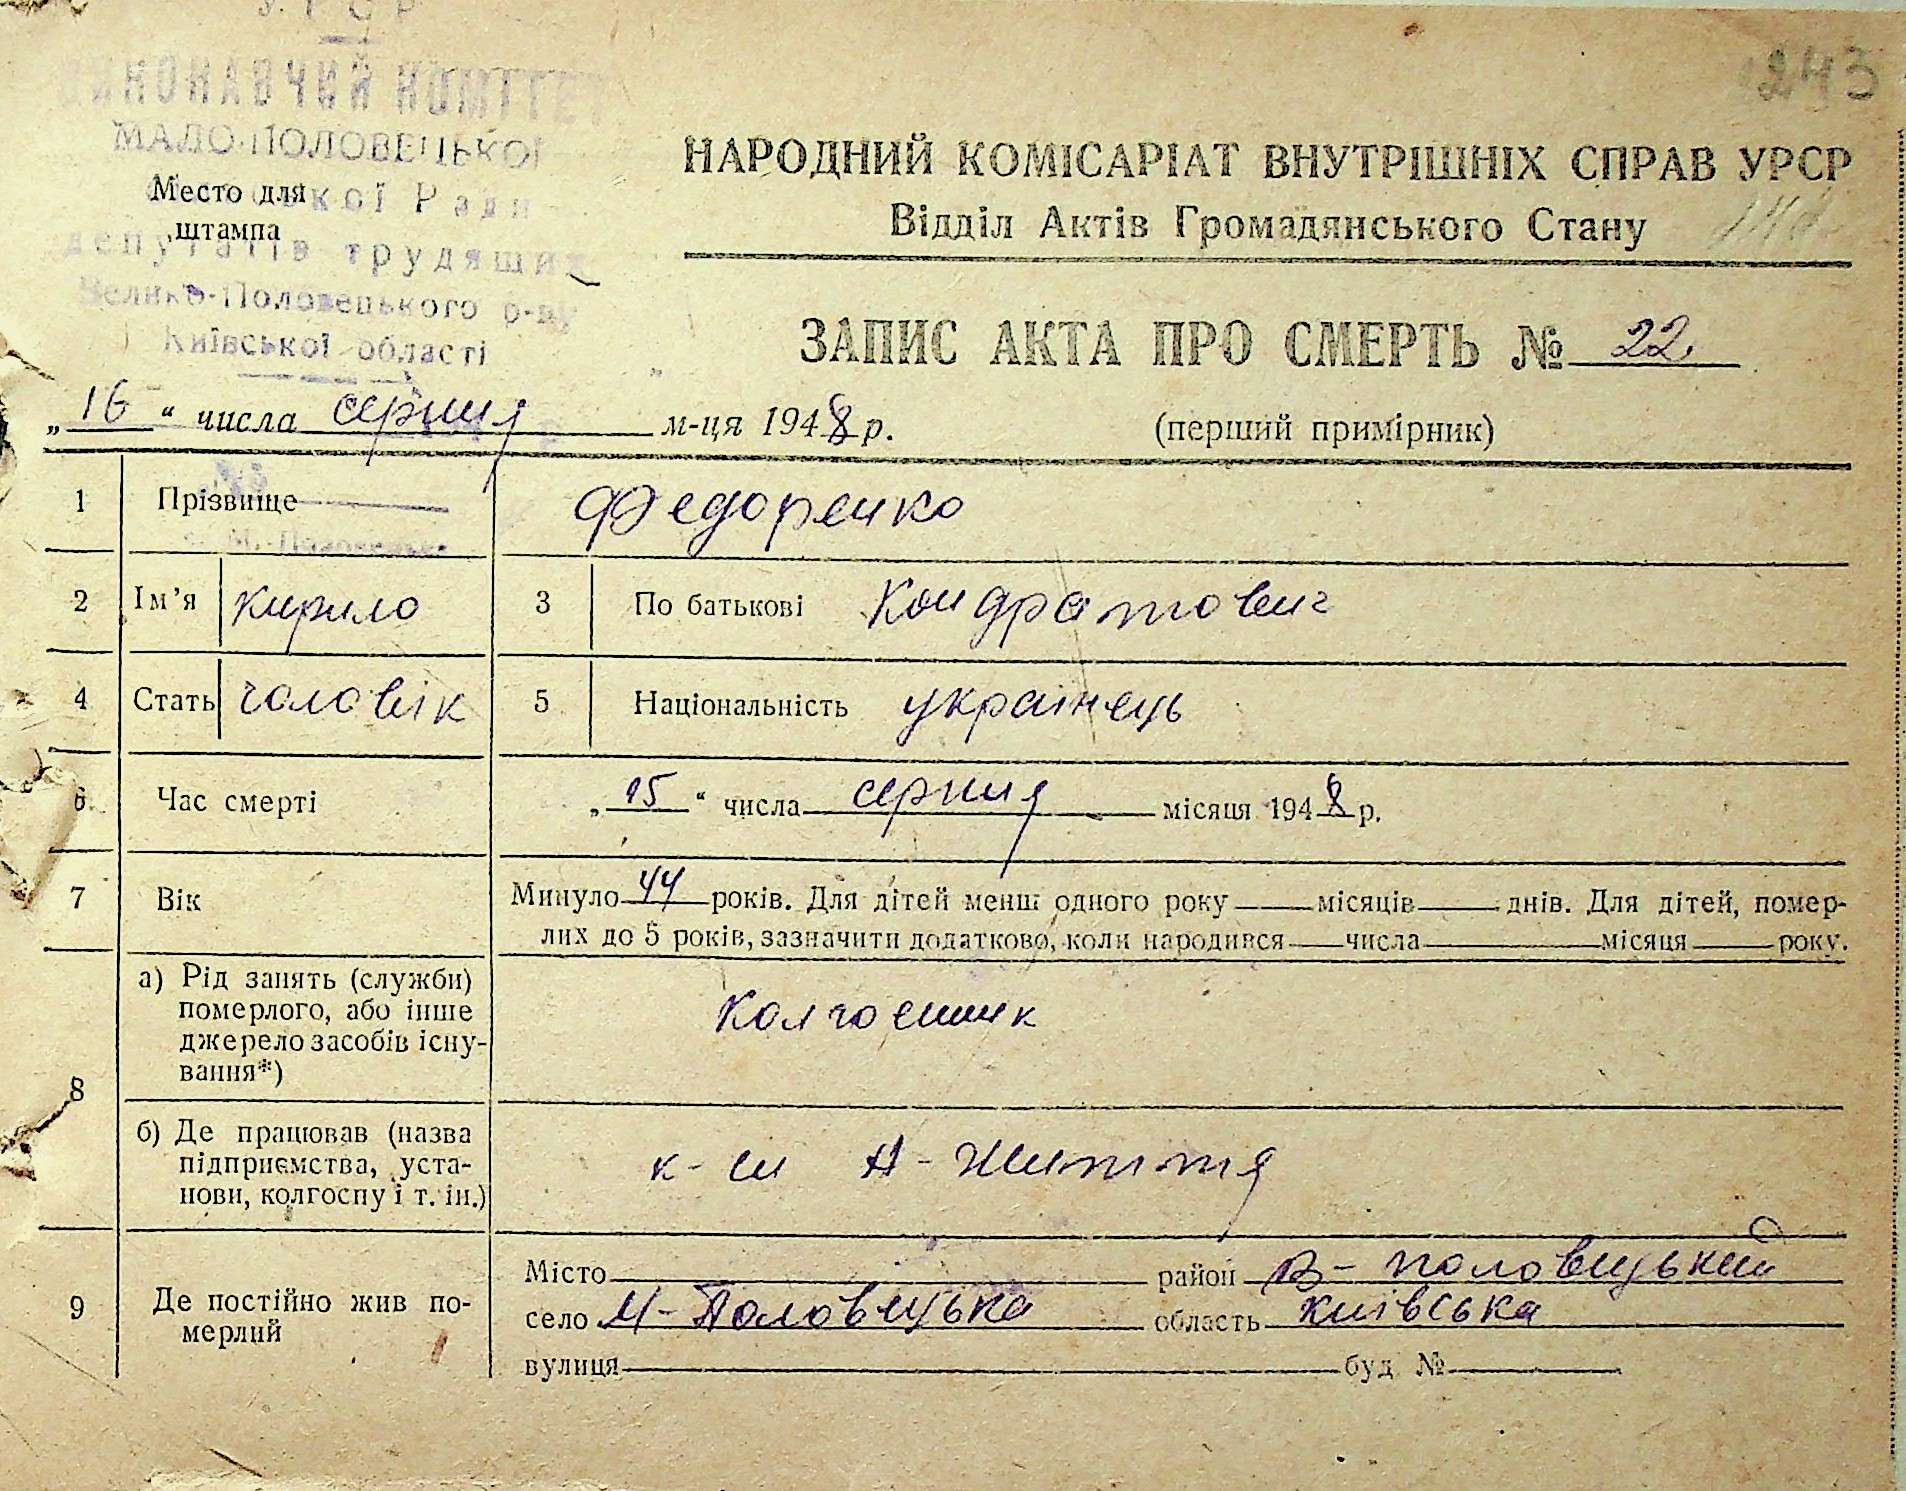 УРСР
ВИКОНАВЧИЙ КОМІТЕТ
МАЛО-ПОЛОВЕЦЬКОЇ
Сільської Ради
депутатів трудящих
Велико-Половецького р-ну
Київської області
Место для
штампа
243
НАРОДНИЙ КОМІСАРІАТ ВНУТРІШНІХ СПРАВ УРСР
Відділ Актів Громадянського Стану
ЗАПИС АКТА ПРО СМЕРТЬ № 22
„16“ числа серпня м-ця 1948 р. (перший примірник)
1 Прізвище Федоренко
2 Ім'я Кирило 3 По батькові Кондратович
4 Стать чоловік 5 Національність українець
6 Час смерті „15“ числа серпня місяця 1948 р.
7 Вік Минуло 44 років. Для дітей менш одного року місяців днів. Для дітей, помер-
лих до 5 років, зазначити додатково, коли народився числа місяця року.
8 а) Рід занять (служби)
померлого, або інше
джерело засобів існу-
вання*)
Колгоспник
б) Де працював (назва
підприємства, уста-
нови, колгоспу і т. ін.)
А-Життя
9 Де постійно жив по-
мерлий
Місто район В-Половецький
село М-Половецька область Київська
вулиця буд №